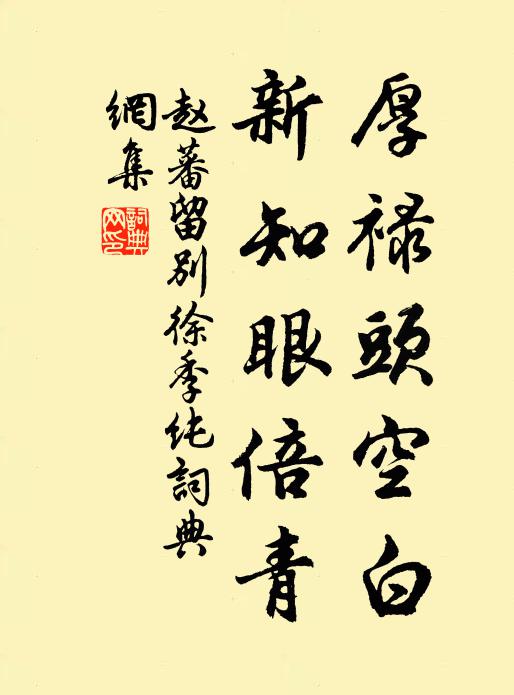 厚禄頭空白
新知眼倍青
赵蕃留别徐季纯詞典
網集
詞典
网印